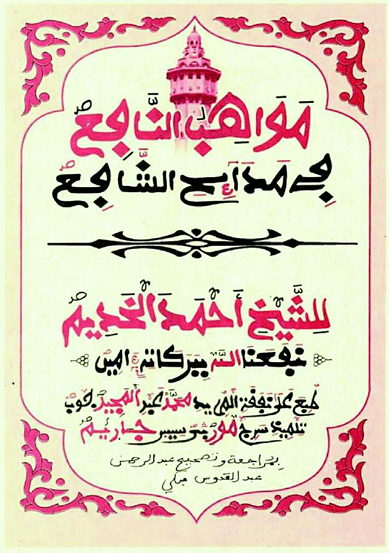 مَوَاهِبُ النَّافِعِ
فِي مَدَائِحِ الشَّافِعِ
لِلشَّيْخِ أَحْمَدَ الْخَدِيمِ
نفعنا الله ببركاته ءامين
طبع على نفقة المريد محمد عبد المجيد
تلميذ سرج مور
بمراجعة وتصحيح عبد الرحمن
عبد القدوس مبكي